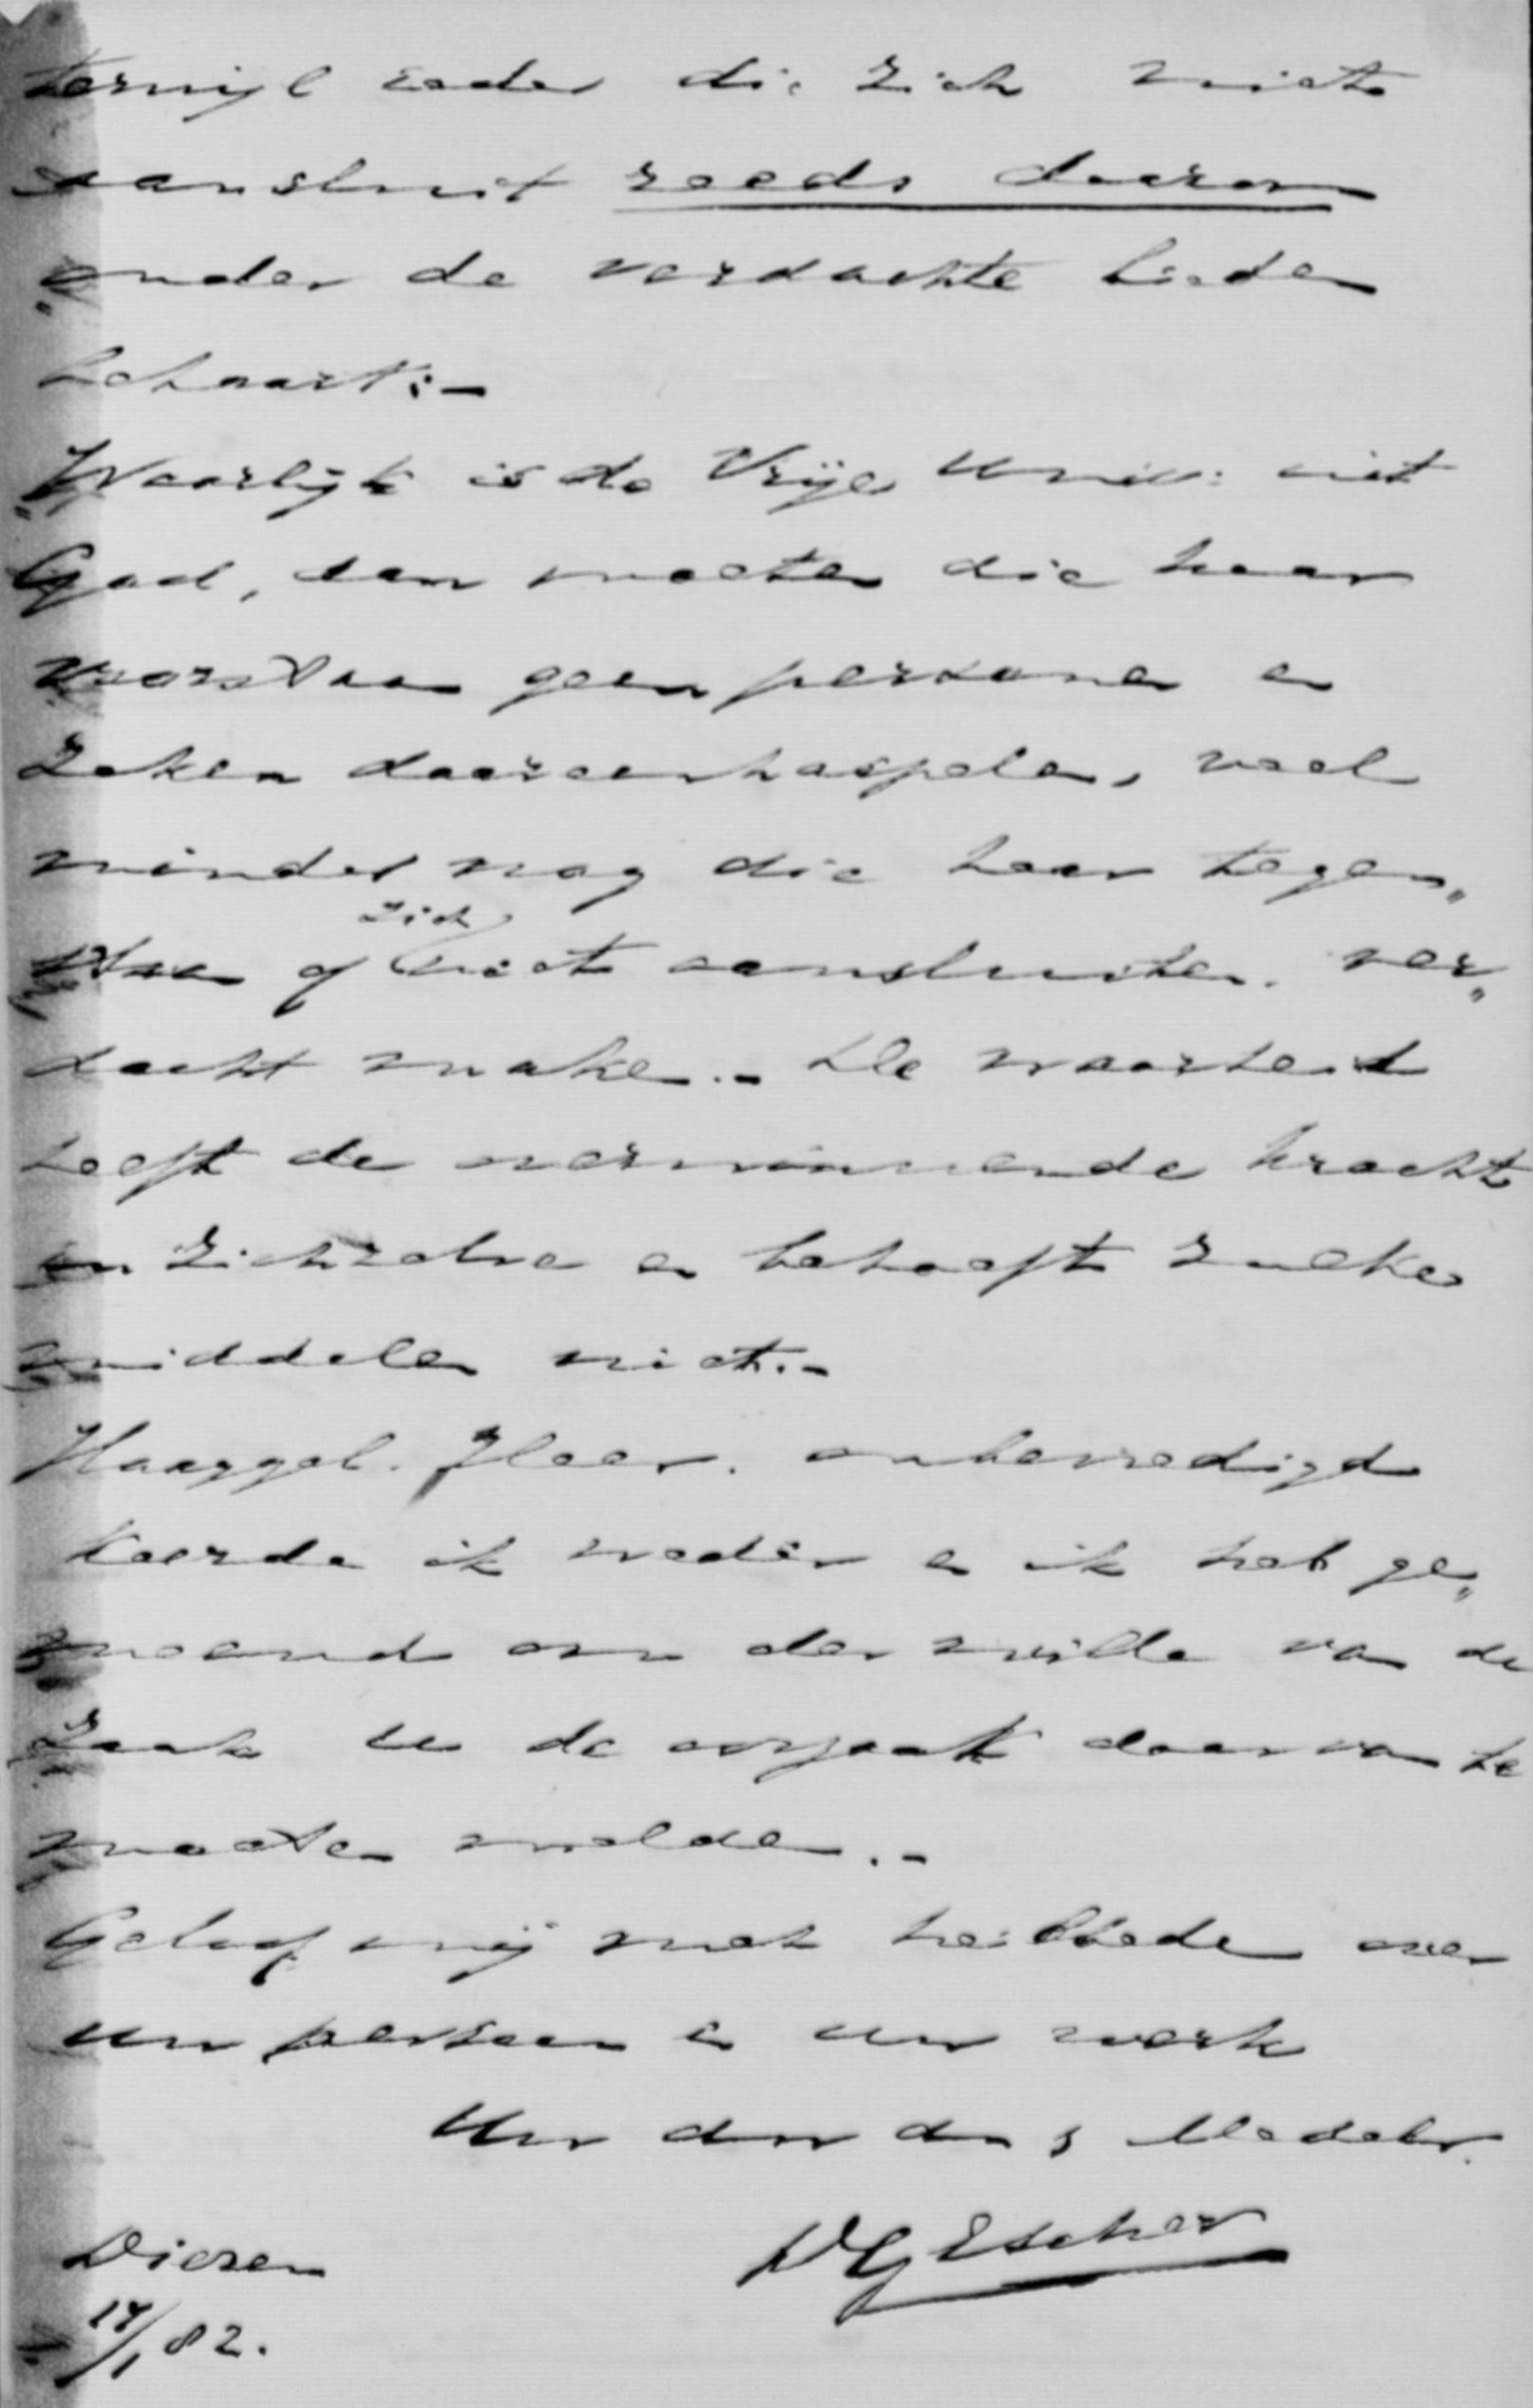 terwijl ieder die zich niet
aansluit reeds daarom
onder de verdachte lieden
behoort:-
„Waarlijk is de Vrije Univ: uit
God, dan moeten die haar
voorstaan geen personen en
zaken dooreenhaspelen, veel
minder nog die haar tegen„
staan of zich niet aansluiten. ver„
dacht maken.- De waarheid
heeft de overwinnende kracht
in zichzelve en behoeft zulke
middelen niet.-
Hooggel. Heer. onbevredigd
keerde ik weder en ik heb ge„
meend om der wille van de
zaak u de oorzaak daarvan te
moeten melden.-
Geloof mij met heilbede over
uw persoon en uw werk
Uw dw dn &
Dieren
DGEscher
14/1 82.